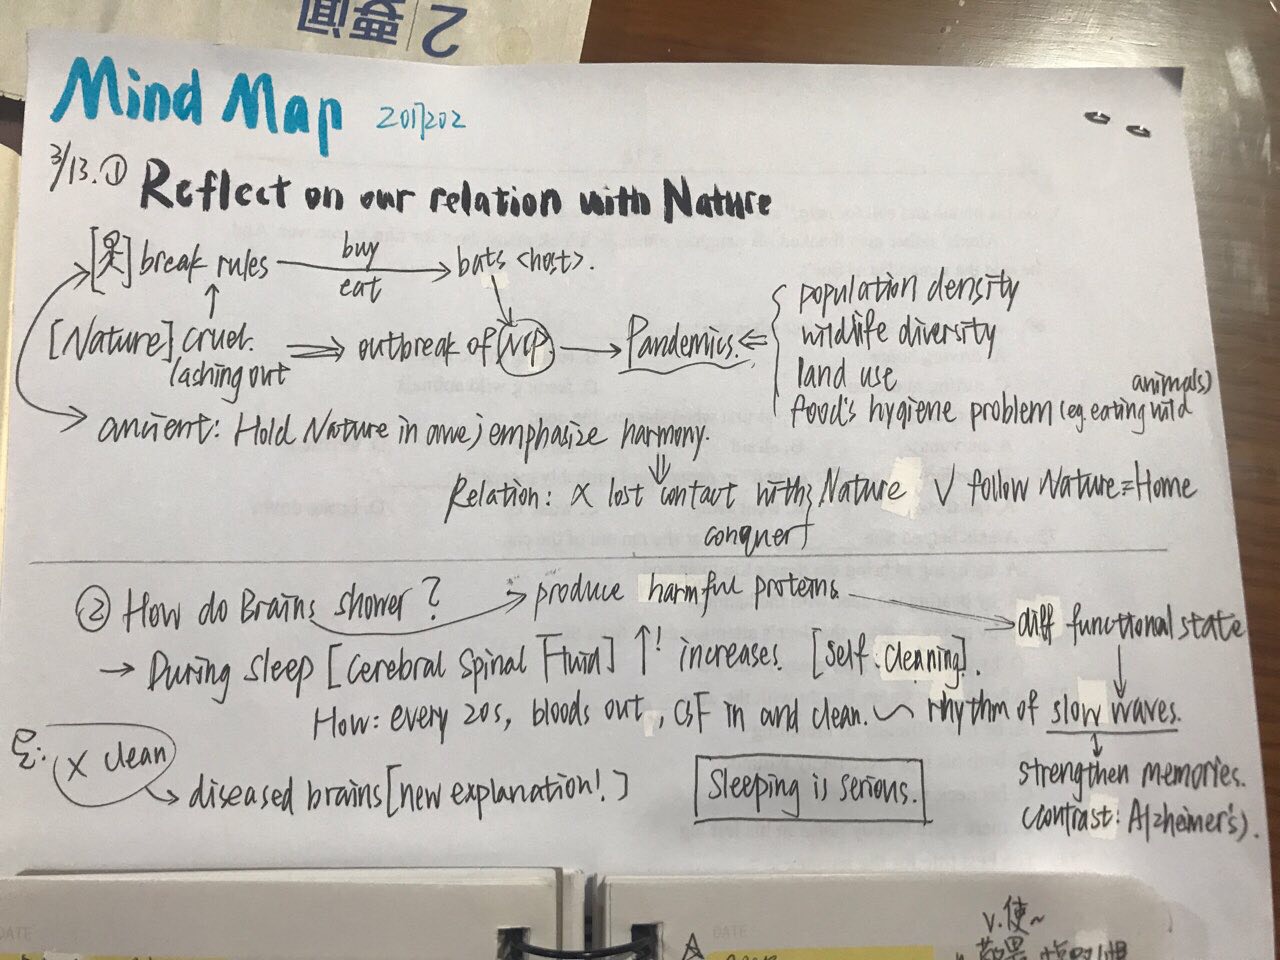 2 要闻
Mind Map 2017202
3/13. ① Reflect on our relation with Nature
break rules buy eat bats <host>.
[Nature] cruel. lashing out ⇒ outbreak of NCP → Pandemics. ⇐
population density
wildlife diversity
land use
food's hygiene problem (eg. eating wild animals)
ancient: Hold Nature in awe; emphasize harmony.
Relation: × lost contact with Nature ∨ follow Nature = Home
conquer
② How do Brains shower? → produce harmful proteins. → diff functional state
→ During sleep [Cerebral Spinal Fluid] ↑! increases. [self-cleaning].
How: every 20s, bloods out, CSF in and clean. ~ rhythm of slow waves.
× clean
→ diseased brains [new explanation!]
Sleeping is serious.
strengthen memories.
(contrast: Alzheimer's).
DATE
DATE
v.使~